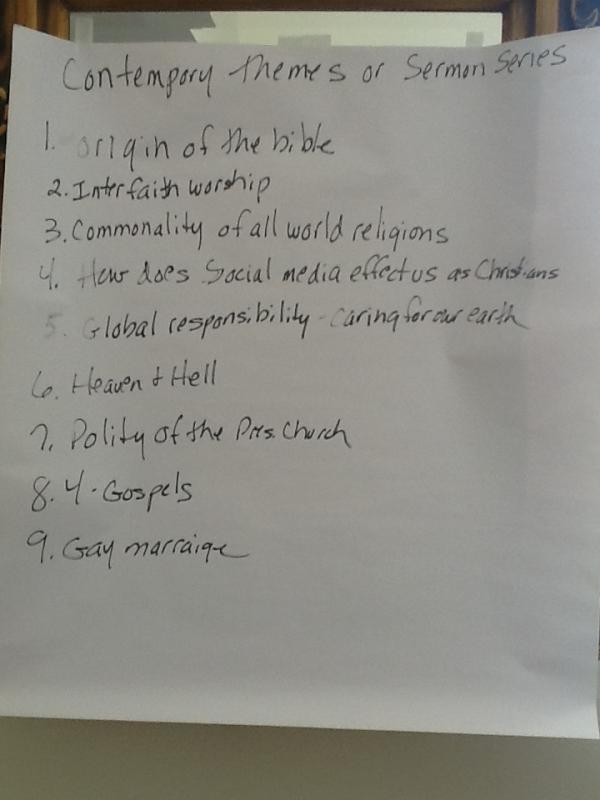 Contempory Themes or Sermon Series
1. Origin of the bible
2. Interfaith worship
3. Commonality of all world religions
4. How does Social media effect us as Christians
5. Global responsibility - caring for our earth
6. Heaven & Hell
7. Polity of the Pres. Church
8. 4 - Gospels
9. Gay marraige